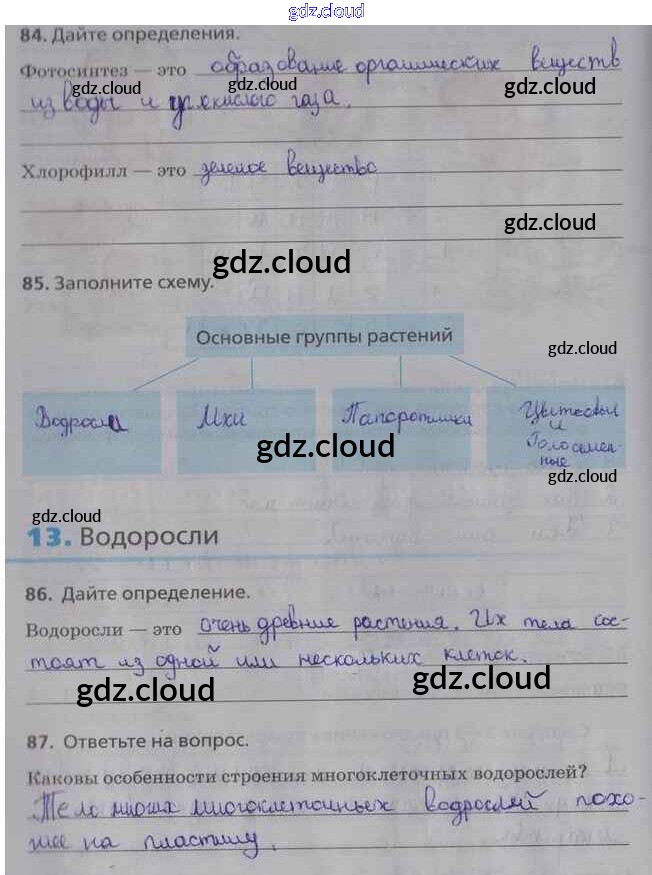 gdz.cloud
84. Дайте определения.
Фотосинтез — это образование органических веществ
gdz.cloud gdz.cloud
из воды и углекислого газа.
Хлорофилл — это зеленое вещество
gdz.cloud
gdz.cloud
85. Заполните схему.
Основные группы растений
gdz.cloud
Водросли Мхи Папоротники Цветковые
и
Голосемен-
ные
gdz.cloud
gdz.cloud
gdz.cloud
13. Водоросли
86. Дайте определение.
Водоросли — это очень древние растения. Их тела сос-
тоят из одной или нескольких клеток.
gdz.cloud gdz.cloud
87. Ответьте на вопрос.
Каковы особенности строения многоклеточных водорослей?
Тело многоклеточных водрослей похо-
же на пластину.
gdz.cloud gdz.cloud